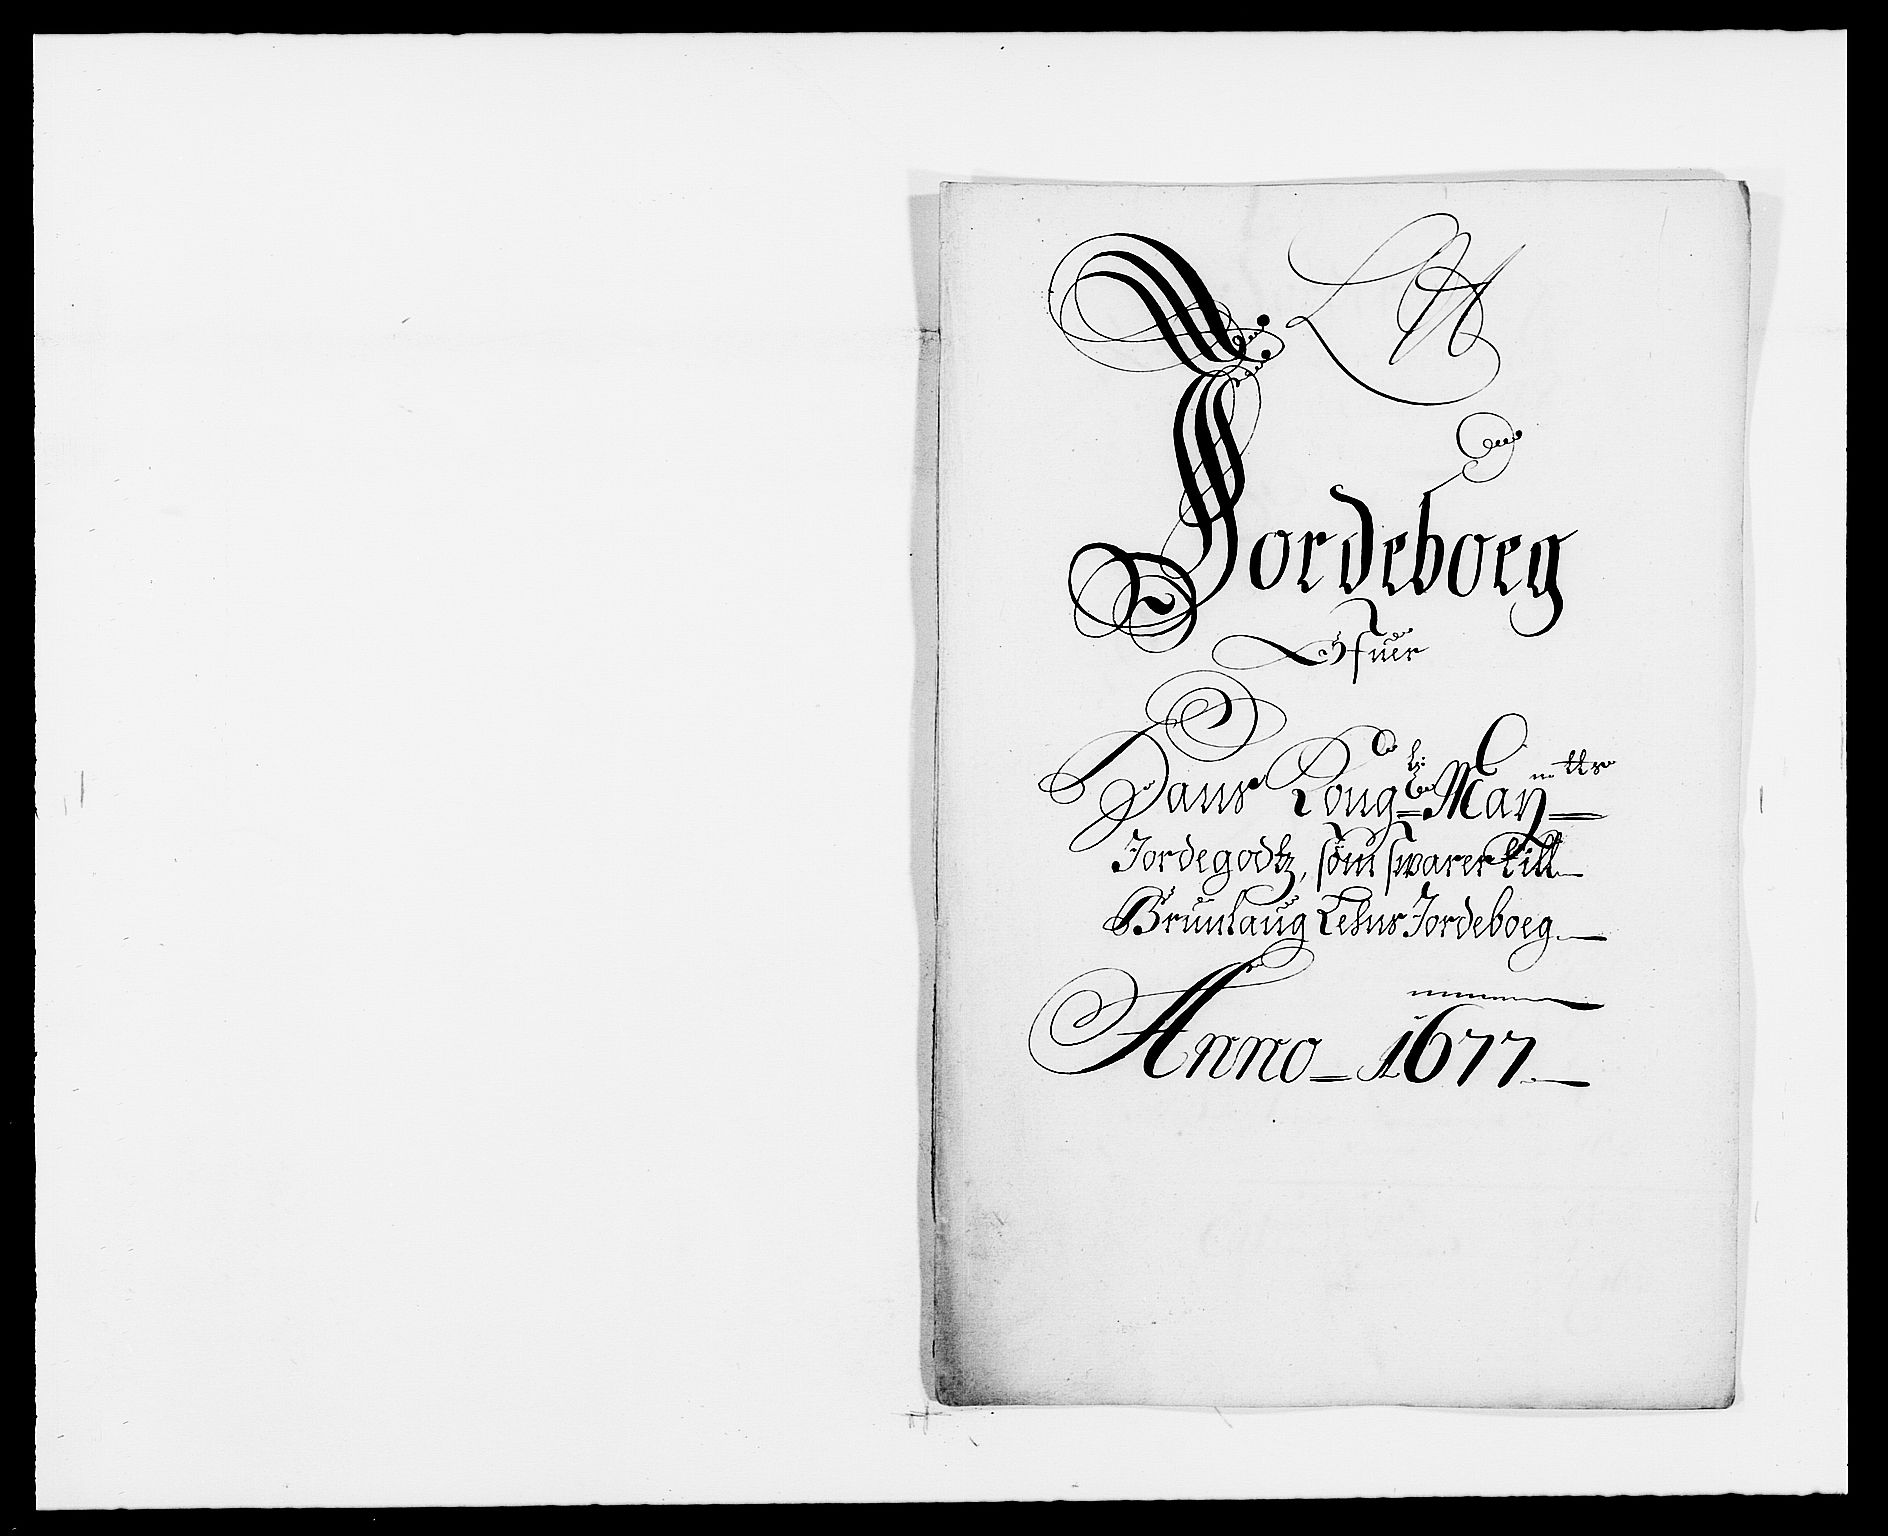 L A
Jordeboeg
Ofuer
Hans Kong: li: May: tts
Jordegodtz, som swarer till
Brunlaug Lehns Jordeboeg
Anno 1677